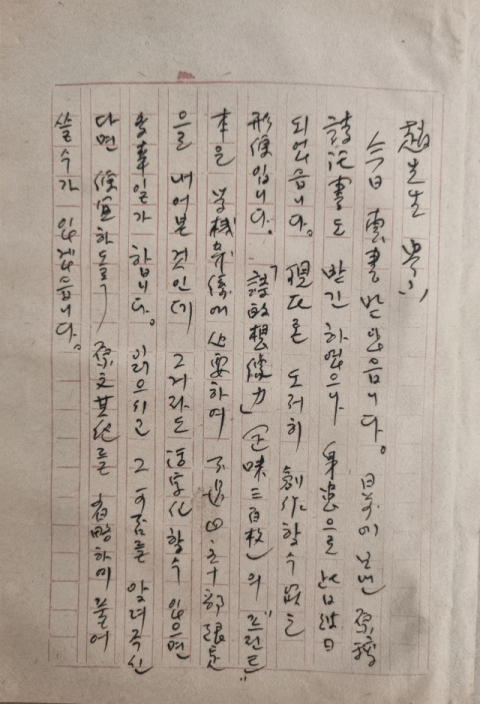 趙先生  
今日 惠書 받았읍니다。 日前에 보낸 原稿
請託書도 받긴 하였으나 身恙으로
되었읍니다。 現在론 도저히 創作할 수 없는
形便입니다。 「詩的想像力」 (正味三百枚)의 "프린트"
本을 学校 관계에 必要하여 不過 四、五十部限定
을 내어본 것인데 그거라도 活字化할 수 있으면
多幸일가 합니다。 읽으시고 그 可否를 알려주신
다면 便宜하도록 原文其他를 省略하여 풀어
쓸 수가 있겠읍니다。